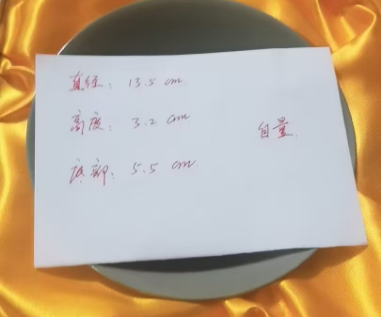 直径: 13.5 cm
高度: 3.2 cm
自量.
底部: 5.5 cm